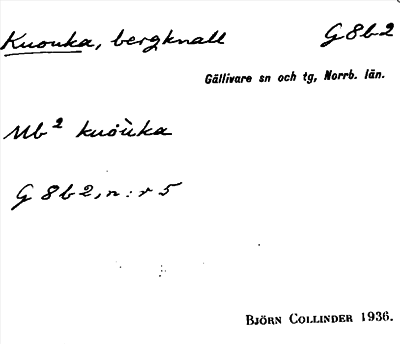 Kuouka, bergknall G8b2
Gällivare sn och tg, Norrb. län.
Mb² kuòu̇ka
G 8 b 2, n:r 5
BJÖRN COLLINDER 1936.